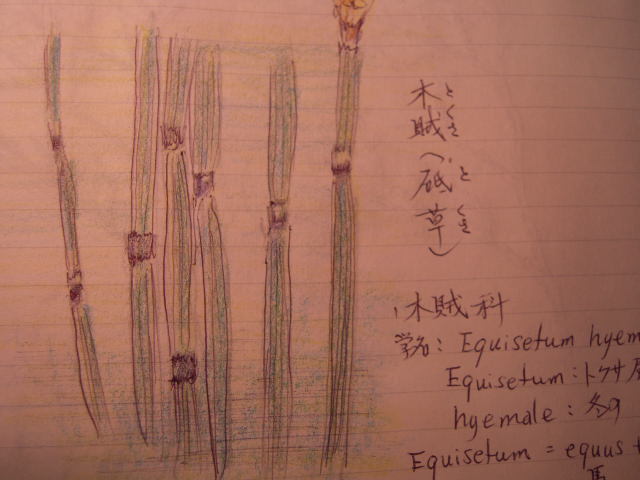 木賊(砥草)
とくさ とくさ
木賊科
学名: Equisetum hyem
Equisetum:トクサ属
hyemale:冬の
Equisetum = equus +
馬